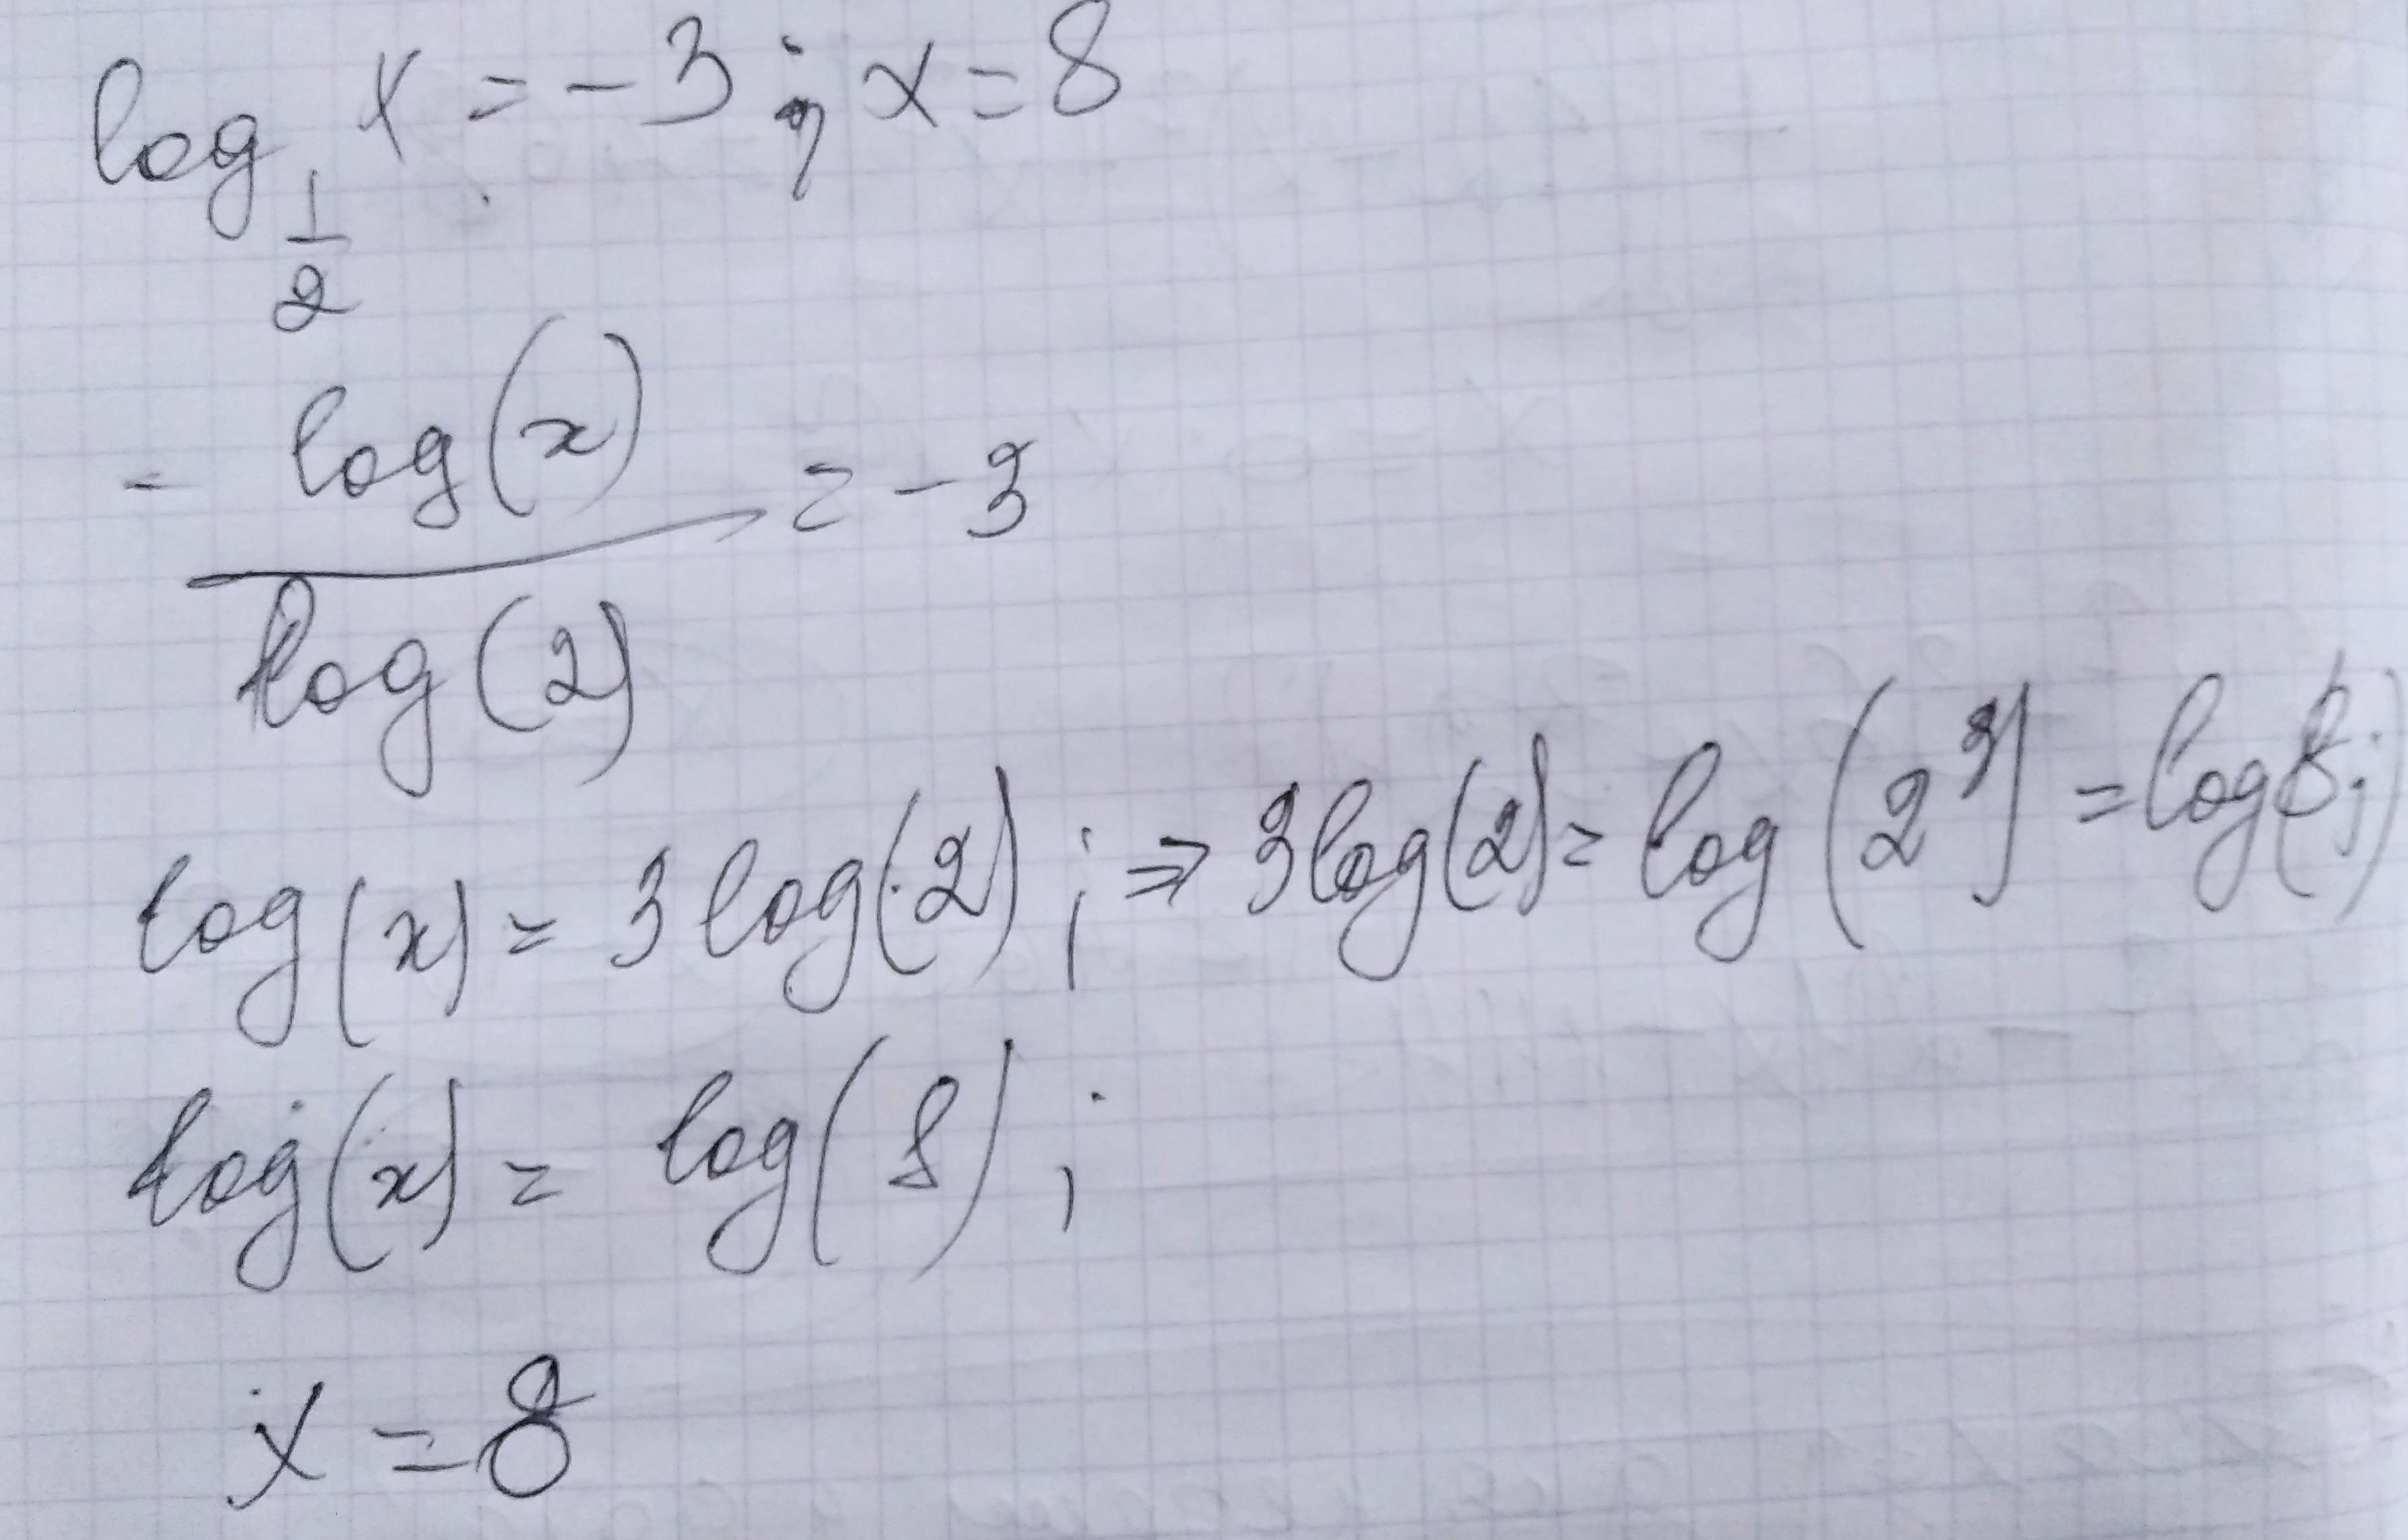 log 1/2 x = -3 ; x = 8
- log(x) / log(2) = -3
log(x) = 3 log(2) ; ⇒ 3 log(2) = log(2³) = log(8);
log(x) = log(8) ;
x = 8